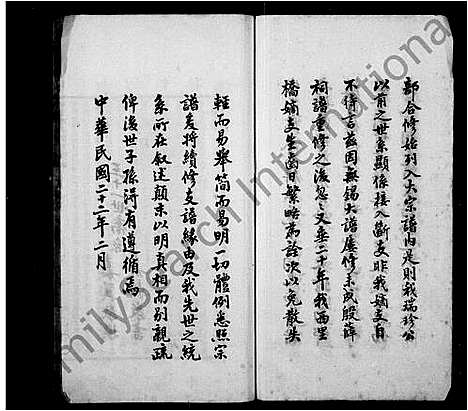 部合修始列入大宗譜内是則我瑞珍公
以前之世系顯係接入斷支非我嫡支自
不待言茲因無錫大譜屢修未成殷薛
祠譜重修之後忽忽又來二十年我西里
橋嫡支生齒日繁略為詮次以免散失
輕而易舉簡而易明一切體例悉照宗
譜爰將續修支譜緣由及我先世之統
系所在叙述顛末以明真相而别親疏
俾後世子孫得有遵循焉
中華民國二十二年二月
milySearch International